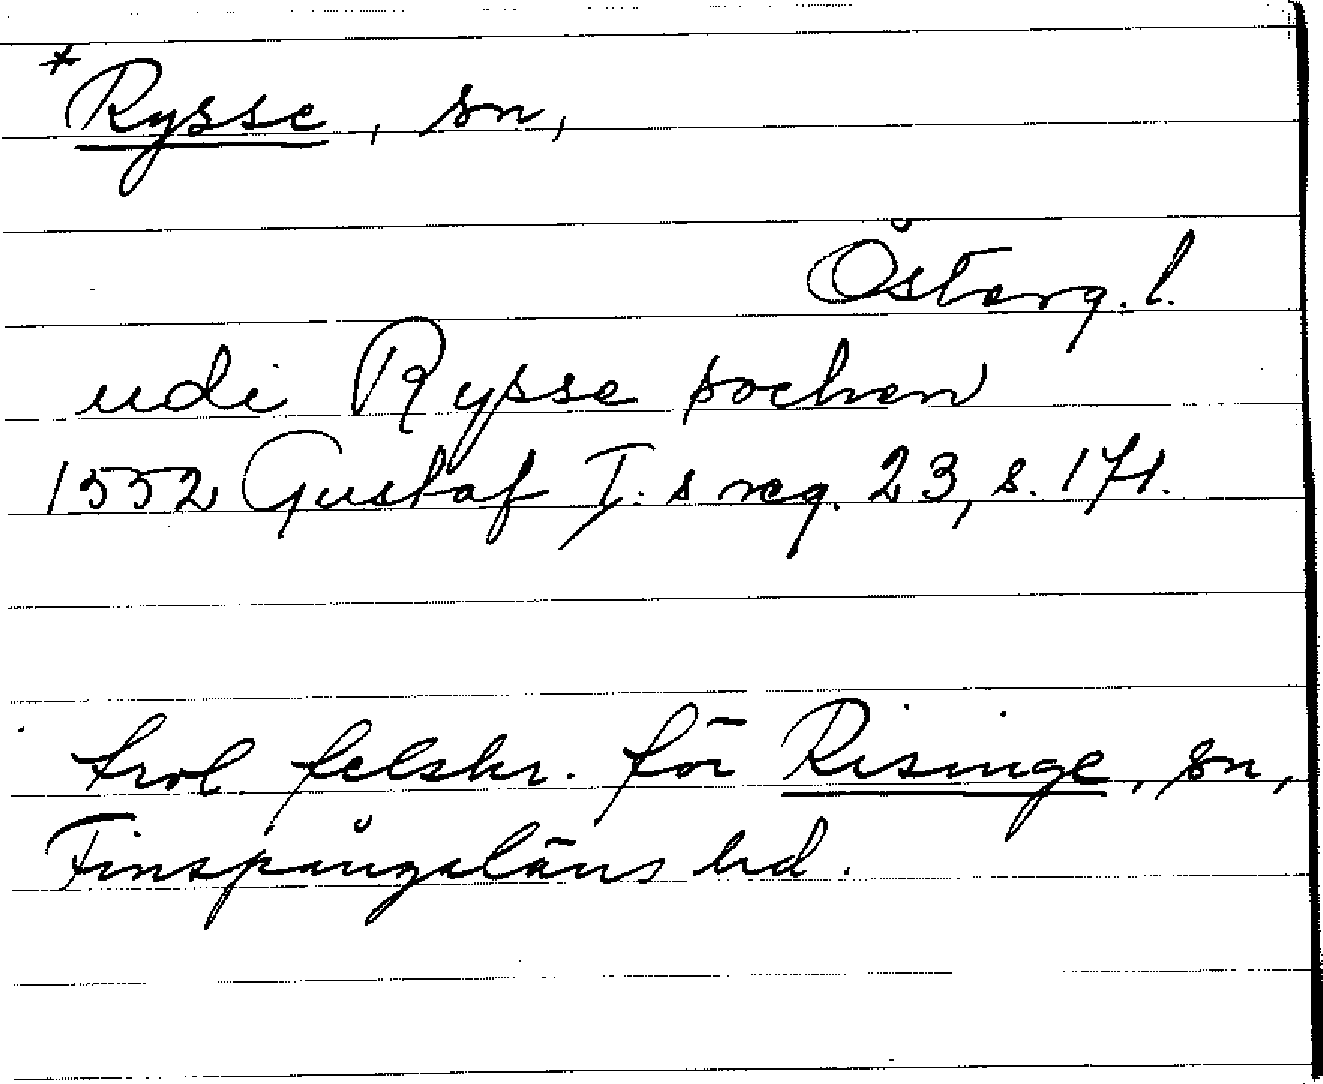 *Rysse, sn,
Österg. l.
udi Rysse sochen
1552 Gustaf I:s reg. 23, s. 171.
trol felskr. för Risinge, sn,
Finspångaläns hd.